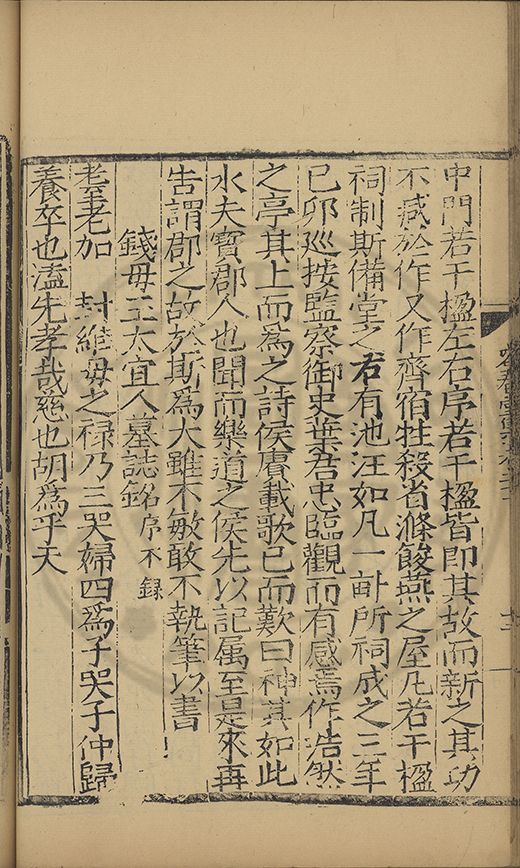 中門若干楹左右序若干楹皆即其故而新之其功
不臧於作又作齊宿牲殺省滌餕燕之屋凡若干楹
祠制斯備堂之右有池汪如凡一畝所祠成之三年
巳卯巡按監察御史葉君忠臨觀而有感焉作浩然
之亭其上而爲之詩侯賡載歌已而歎曰神其如此
水夫寶郡人也聞而樂道之侯先以記属至是來再
吿謂郡之故於斯爲大雖不敏敢不執筆以書
錢母王太宜人墓誌銘序不録
耄耄老加 封維母之禄乃三哭婦四爲子哭子仲歸
養卒也溘先孝哉慈也胡爲乎天